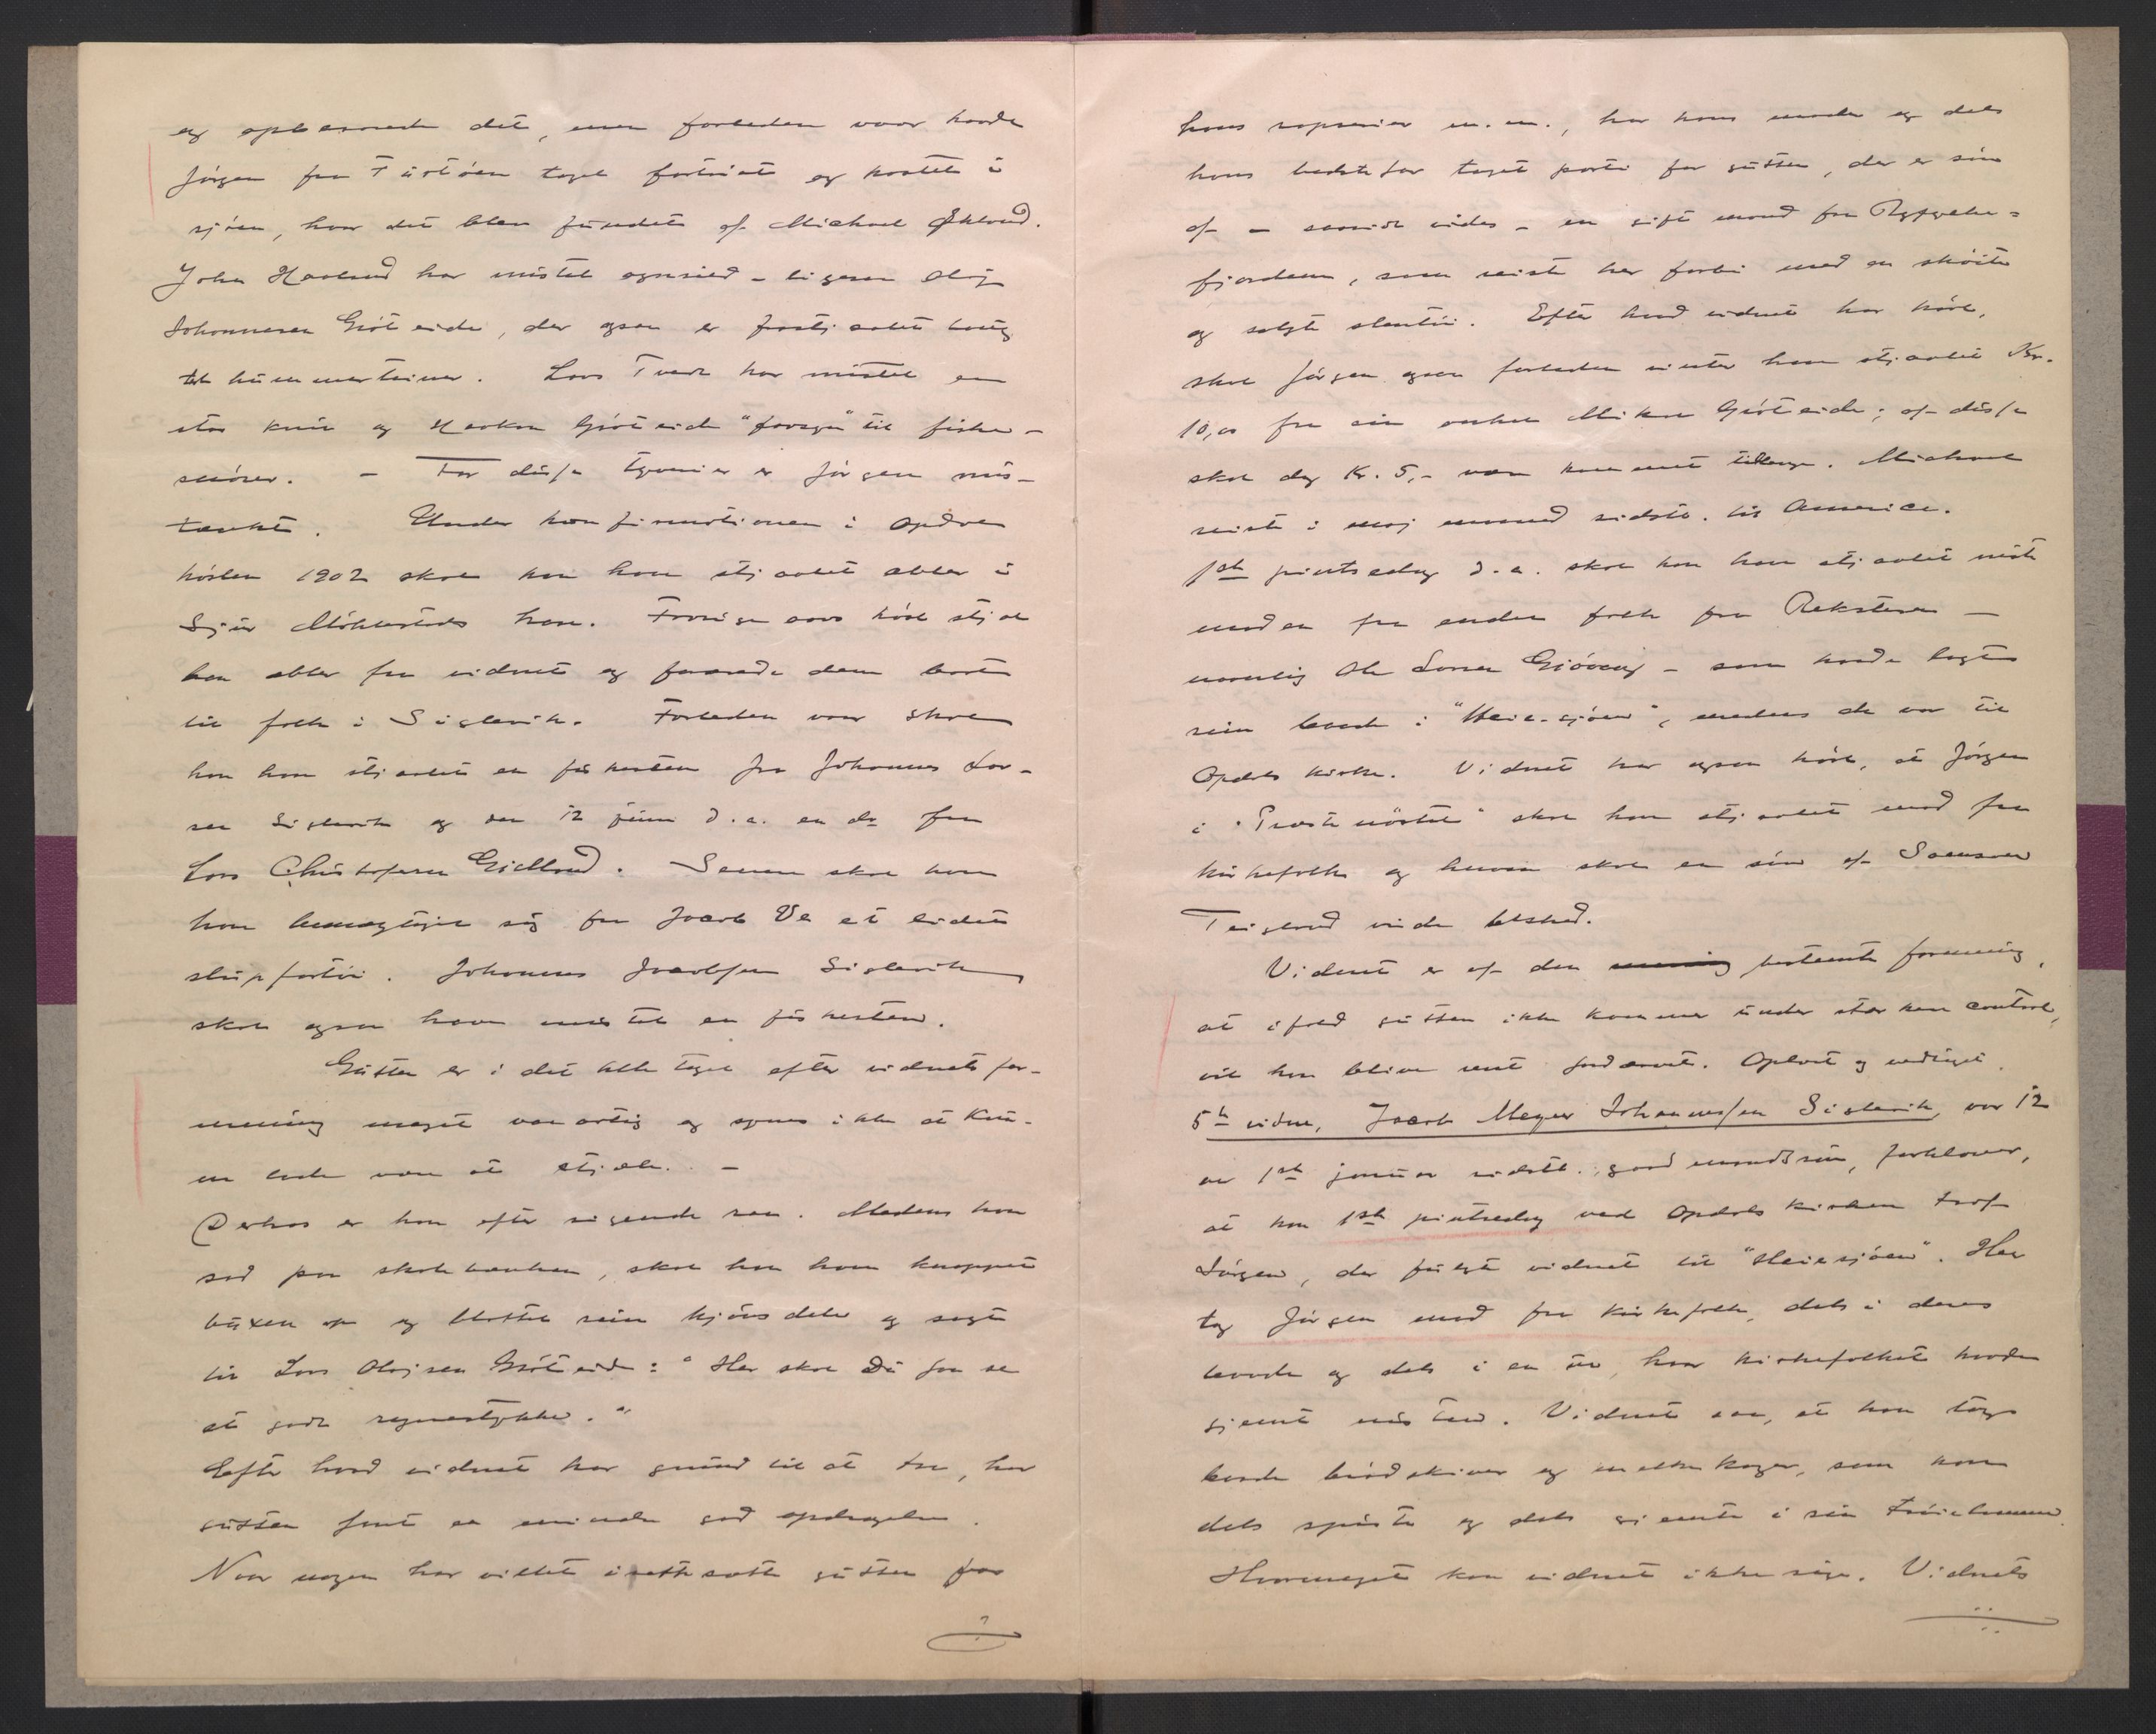 og opbevaret det, men forleden vaar havde
Jörgen fra Tüstöen taget fortöiet og kastet i
sjöen, hvor det blev fündet af Michael Økland.
John Havland har mistet ogsaa – ligesaa Oluf
Johannesen Gröteide, der ogsaa er frastjaalet
hümmerteiner. Lars Tveit har mistet en
stor kniv og Haakon Gröteide "forsyn" til fiske-
snörer. – For disse tyverier er Jörgen mis-
tænkt. Under konfirmationen i Opdal
hösten 1902 skal han have stjaalet æbler i
Sjür Möklestads have. Forrige aars höst stjal
han æbler fra vidnet og forærede dem bort
til folk i Siglevik. Forleden vaar skal
han have stjaalet en fiskesten fra Johannes Lar-
sen Siglevik og den 12 jüni d.a. en do fra
Lars Christofersen Gjelland. Senere skal han
have bemægtiget sig fra Jacob Ve et lidet
slüpfortöi. Johannes Jacobsen Siglevik
skal ogsaa have mistet en fiskesten.
Gütten er i det hele taget efter vidnets for-
mening meget vanartig og synes ikke at kün-
ne lade være at stjæle. –
Derhos er han efter sigende raa. Medens han
sad paa skolebænken, skal han have knappet
büxen op og blottet sine kjönsdele og sagt
til Lars Olajsen Gröteide: "Her skal Dü faa se
et godt regnestykke."
Efter hvad vidnet har gründ til at tro, har
gütten faaet en mindre god opdragelse.
Naar nogen har villet irettesætte gütten for
hans rapserier m.m., har hans moder og dels
hans bedstefar taget parti for gütten, der er sön
af – saavidt vides – en gift mand fra Ryfylke-
fjordene, som reiste her forbi med en sköite
og solgte stentöi. Efter hvad vidnet har hört,
skal Jörgen ogsaa forleden vinter have stjaalet Kr.
10,00 fra sin onkel Mikal Gröteide; af disse
skal dog Kr. 5,– være kommet tilbage. Michael
reiste i maj maaned sidstl. til America.
1ste pintsedag d.a. skal han have stjaalet niste
maden fra endel folk fra Reksteren –
navnlig Ole Larsen Gjövaag – som havde lagt
sin baad i "Heie-sjöen", medens de var til
Opdals kirke. Vidnet har ogsaa hört, at Jörgen
i "Prestenöstet" skal have stjaalet mad fra
kirkefolk og herom skal en sön af Samson
Teigland vide besked.
Vidnet er af den bestemte formening,
at ifald gütten ikke kommer ünder stærkere control,
vil han blive rent fordærvet. Oplæst og vedtaget.
5te vidne, Jacob Meyer Johannessen Siglevik, var 12
aar 1ste janüar sidstl., gaardmandssön, forklarer,
at han 1ste pintsedag ved Opdals kirken traf
Jörgen, der fülgte vidnet til "Heiesjöen". Her
tog Jörgen mad fra kirkefolk, dels i deres
baade og dels i en ür, hvor kirkefolket havde
gjemt nisten. Vidnet saa, at han tog
baade brödskiver og melkekager, som han
dels spiste og dels gjemte i sin tröielomme.
Hvormeget kan vidnet ikke sige. Vidnets